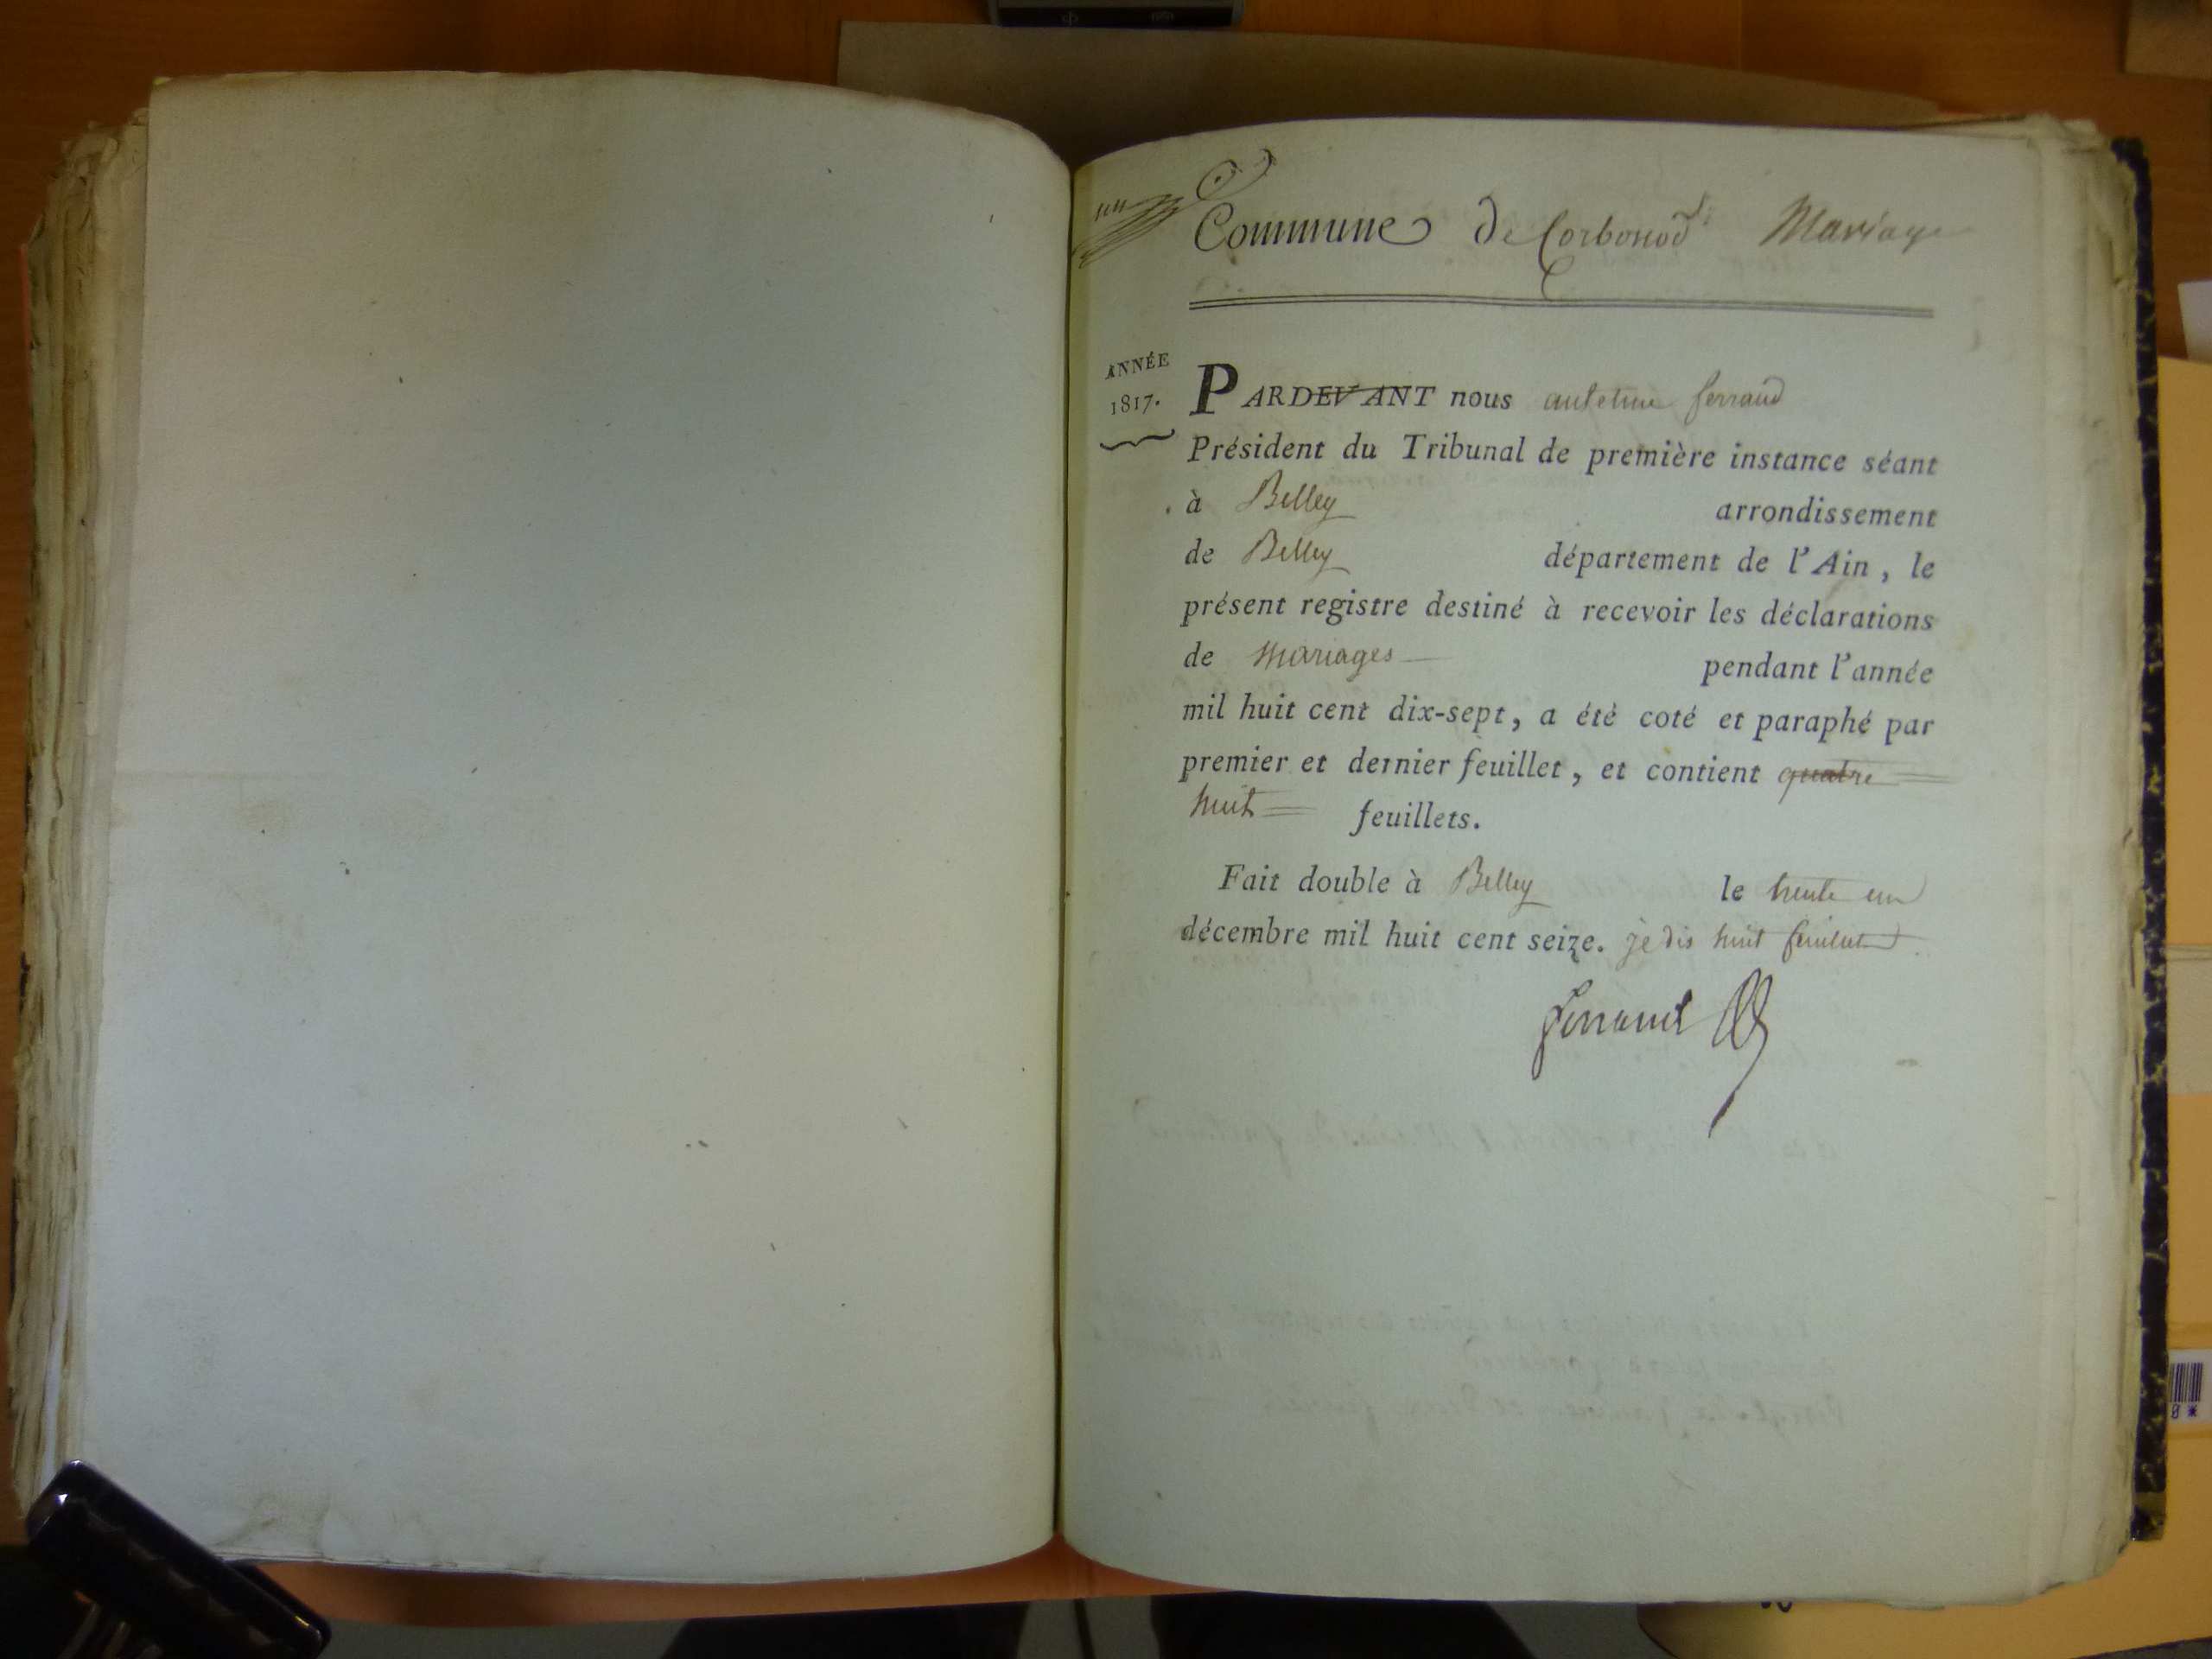 Commune de Corbonod Mariage
ANNÉE
1817.
PARDEVANT nous anselme ferrand
Président du Tribunal de première instance séant
à Belley arrondissement
de Belley département de l'Ain, le
présent registre destiné à recevoir les déclarations
de Mariages pendant l'année
mil huit cent dix-sept, a été coté et paraphé par
premier et dernier feuillet, et contient quatre
huit feuillets.
Fait double à Belley le trente un
décembre mil huit cent seize. je dis huit feuillets
ferrand